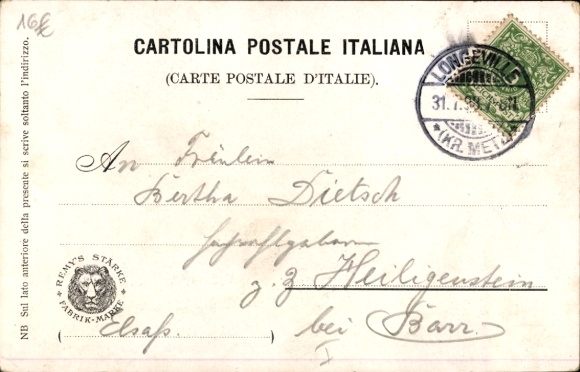 16€
CARTOLINA POSTALE ITALIANA
(CARTE POSTALE D'ITALIE).
LONGEVILLE
31.7.
*(KR. METZ)*
An Fräulein
Bertha Dietsch
z. Z Heiligenstein
bei Barr.
Elsaß.
REMY'S STÄRKE
FABRIK-MARKE
NB Sul lato anteriore della presente si scrive soltanto l'indirizzo.